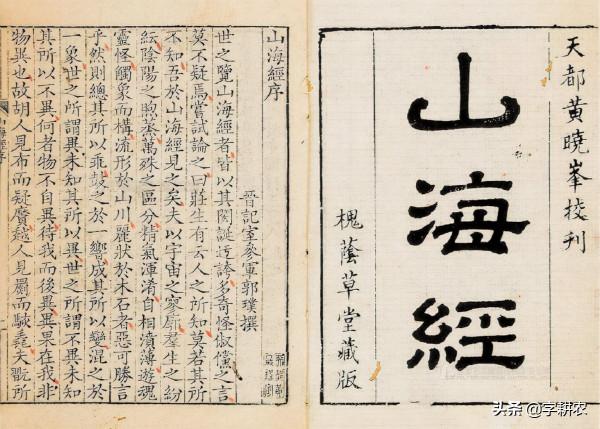 天都黄曉峯挍刊
山海經
槐蔭草堂藏版
山海經序
晉記室參軍郭璞撰
世之覽山海經者皆以其閎誕迂誇多奇怪俶儻之言
莫不疑焉嘗試論之曰莊生有云人之所知莫若其所
不知吾於山海經見之矣夫以宇宙之寥廓羣生之紛
紜陰陽之煦蒸萬殊之區分精氣渾淆自相濆薄遊魂
靈怪觸象而構流形於山川麗狀於木石者惡可勝言
乎然則總其所以乖鼓之於一響成其所以變混之於
一象世之所謂異未知其所以異世之所謂不異未知
其所以不異何者物不自異待我而後異異果在我非
物異也故胡人見布而疑黂越人見罽而駭毳夫翫所
头条 @学耕农